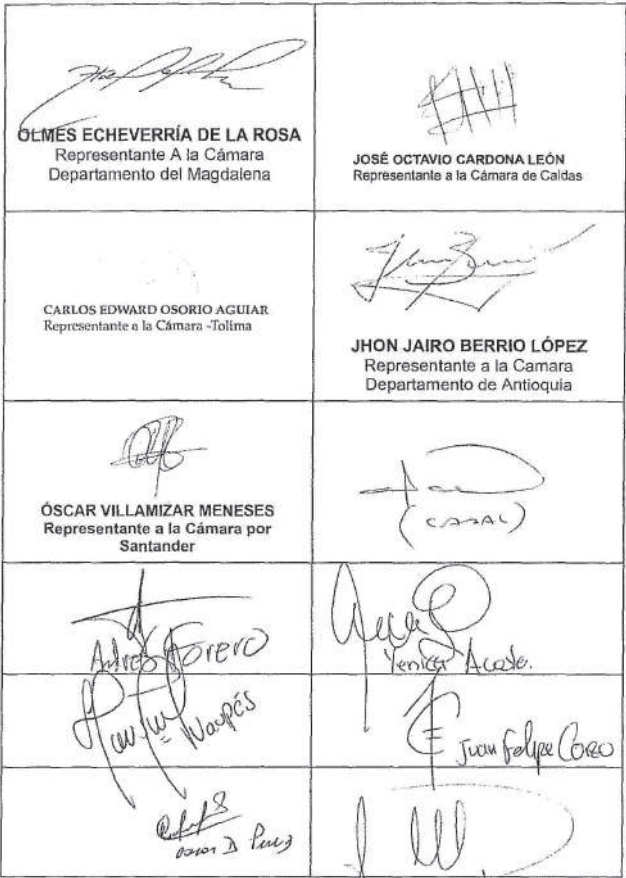 OLMES ECHEVERRÍA DE LA ROSA
Representante A la Cámara
Departamento del Magdalena
JOSÉ OCTAVIO CARDONA LEÓN
Representante a la Cámara de Caldas
CARLOS EDWARD OSORIO AGUIAR
Representante a la Cámara -Tolima
JHON JAIRO BERRIO LÓPEZ
Representante a la Camara
Departamento de Antioquia
ÓSCAR VILLAMIZAR MENESES
Representante a la Cámara por
Santander
Andres Forero
Yenica Acosta.
Vaupés
Juan Felipe Corzo